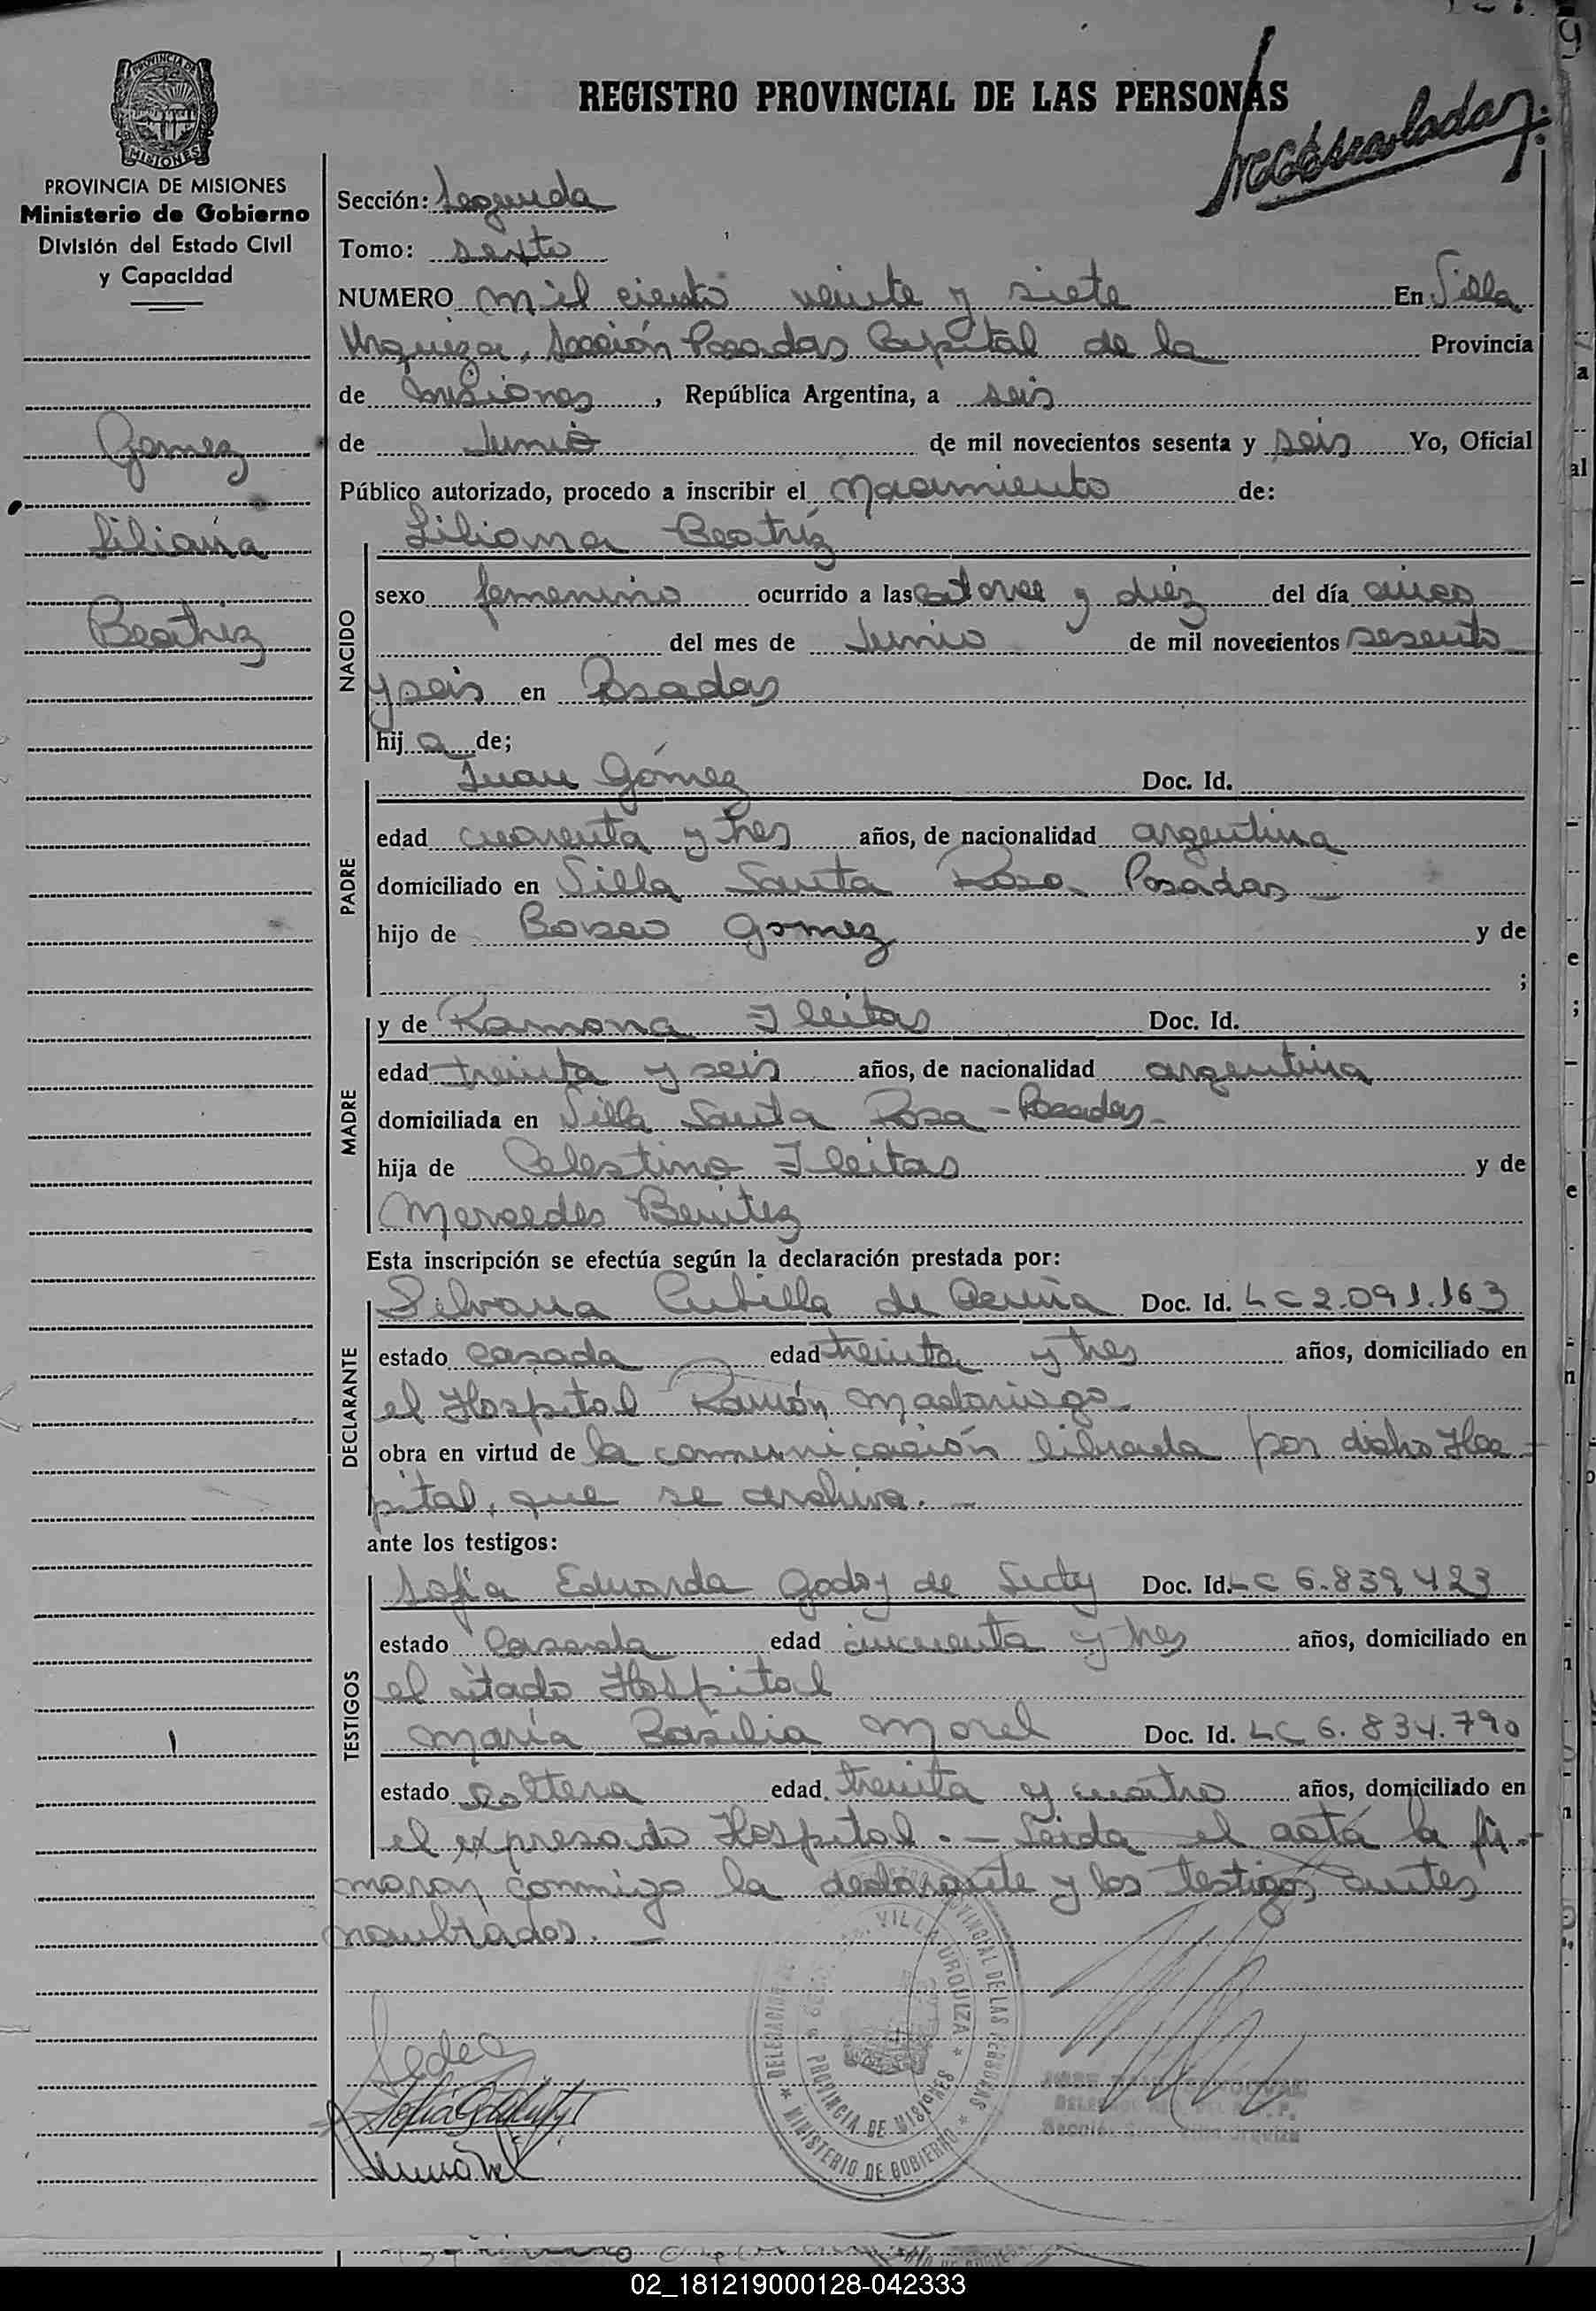 REGISTRO PROVINCIAL DE LAS PERSONAS
PROVINCIA DE MISIONES
Ministerio de Gobierno
División del Estado Civil
y Capacidad
Gomez
Liliana
Beatriz
Sección: Segunda
Tomo: sexto
NUMERO mil ciento veinte y siete En Villa
Urquiza, Sección Posadas Capital de la Provincia
de Misiones, República Argentina, a seis
de Junio de mil novecientos sesenta y seis Yo, Oficial
Público autorizado, procedo a inscribir el Nacimiento de:
Liliana Beatríz
NACIDO
sexo femenino ocurrido a las catorce y diéz del día cinco
del mes de Junio de mil novecientos sesenta
y seis en Posadas
hij a de;
PADRE
Juan Gómez Doc. Id.
edad cuarenta y tres años, de nacionalidad argentina
domiciliado en Villa Santa Rosa Posadas
hijo de Gomez y de
;
MADRE
y de Ramona Fleitas Doc. Id.
edad treinta y seis años, de nacionalidad argentina
domiciliada en Villa Santa Rosa - Posadas -
hija de Celestino Fleitas y de
Mercedes Benitez
Esta inscripción se efectúa según la declaración prestada por:
DECLARANTE
Silvana Cubilla de Acuña Doc. Id. LC 2.091.163
estado casada edad treinta y tres años, domiciliado en
el Hospital Ramón Madariaga
obra en virtud de la comunicación librada por dicho Hos-
pital, que se archiva. -
ante los testigos:
TESTIGOS
Sofía Eduarda Godoy de Doc. Id. LC 6.839.423
estado Casada edad cincuenta y tres años, domiciliado en
el citado Hospital
María Basilia Morel Doc. Id. LC 6.834.790
estado soltera edad treinta y cuatro años, domiciliado en
el expresado Hospital. - Leida el acta la fir-
maron conmigo la declarante y los testigos antes
nombrados. -
DELEGACION VILLA URQUIZA
PROVINCIAL DE LAS PERSONAS
PROVINCIA DE MISIONES
MINISTERIO DE GOBIERNO
02_181219000128-042333